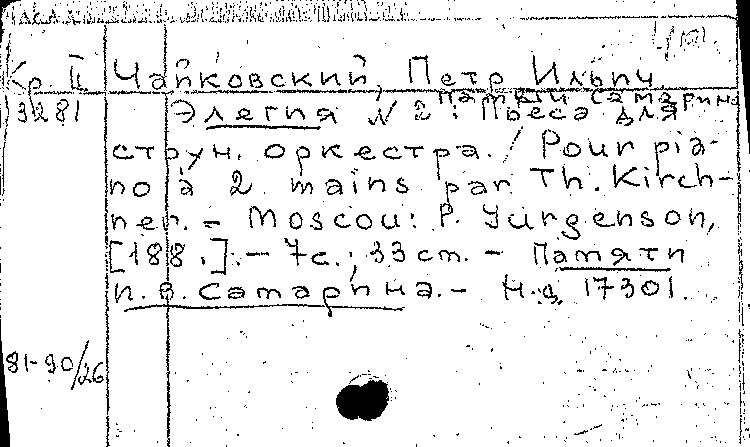 Кр. II Чайковский, Петр Ильич.
памяти Самарина
13281 Элегия N 2: Пьеса для
струн. оркестра. / Pour pia-
no à 2 mains par Th. Kirch-
ner. – Moscou: P. Jurgenson,
[188.]. – 7с.; 33 cm. – Памяти
И.В. Самарина. – Н.д. 17301.
81-90/26